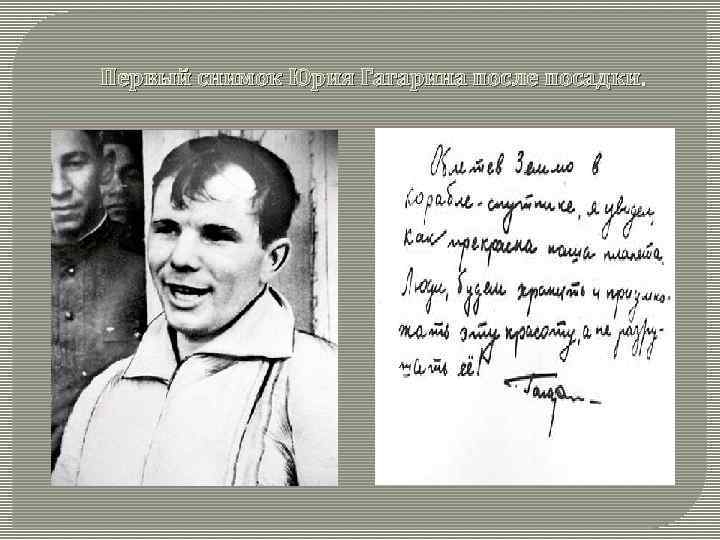 Первый снимок Юрия Гагарина после посадки.
Облетев Землю в
корабле-спутнике, я увидел,
как прекрасна наша планета.
Люди, будем хранить и приумно-
жать эту красоту, а не разру-
шать её!
Гагарин